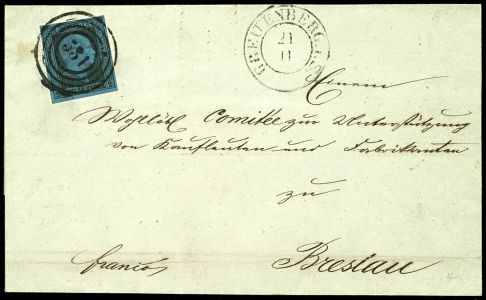 GREIFFENBERG
21
11
Einem
Wohllöbl Comitée zur Unterstützung
von Kaufleuten und Fabrikanten
zu
Breslau
franco